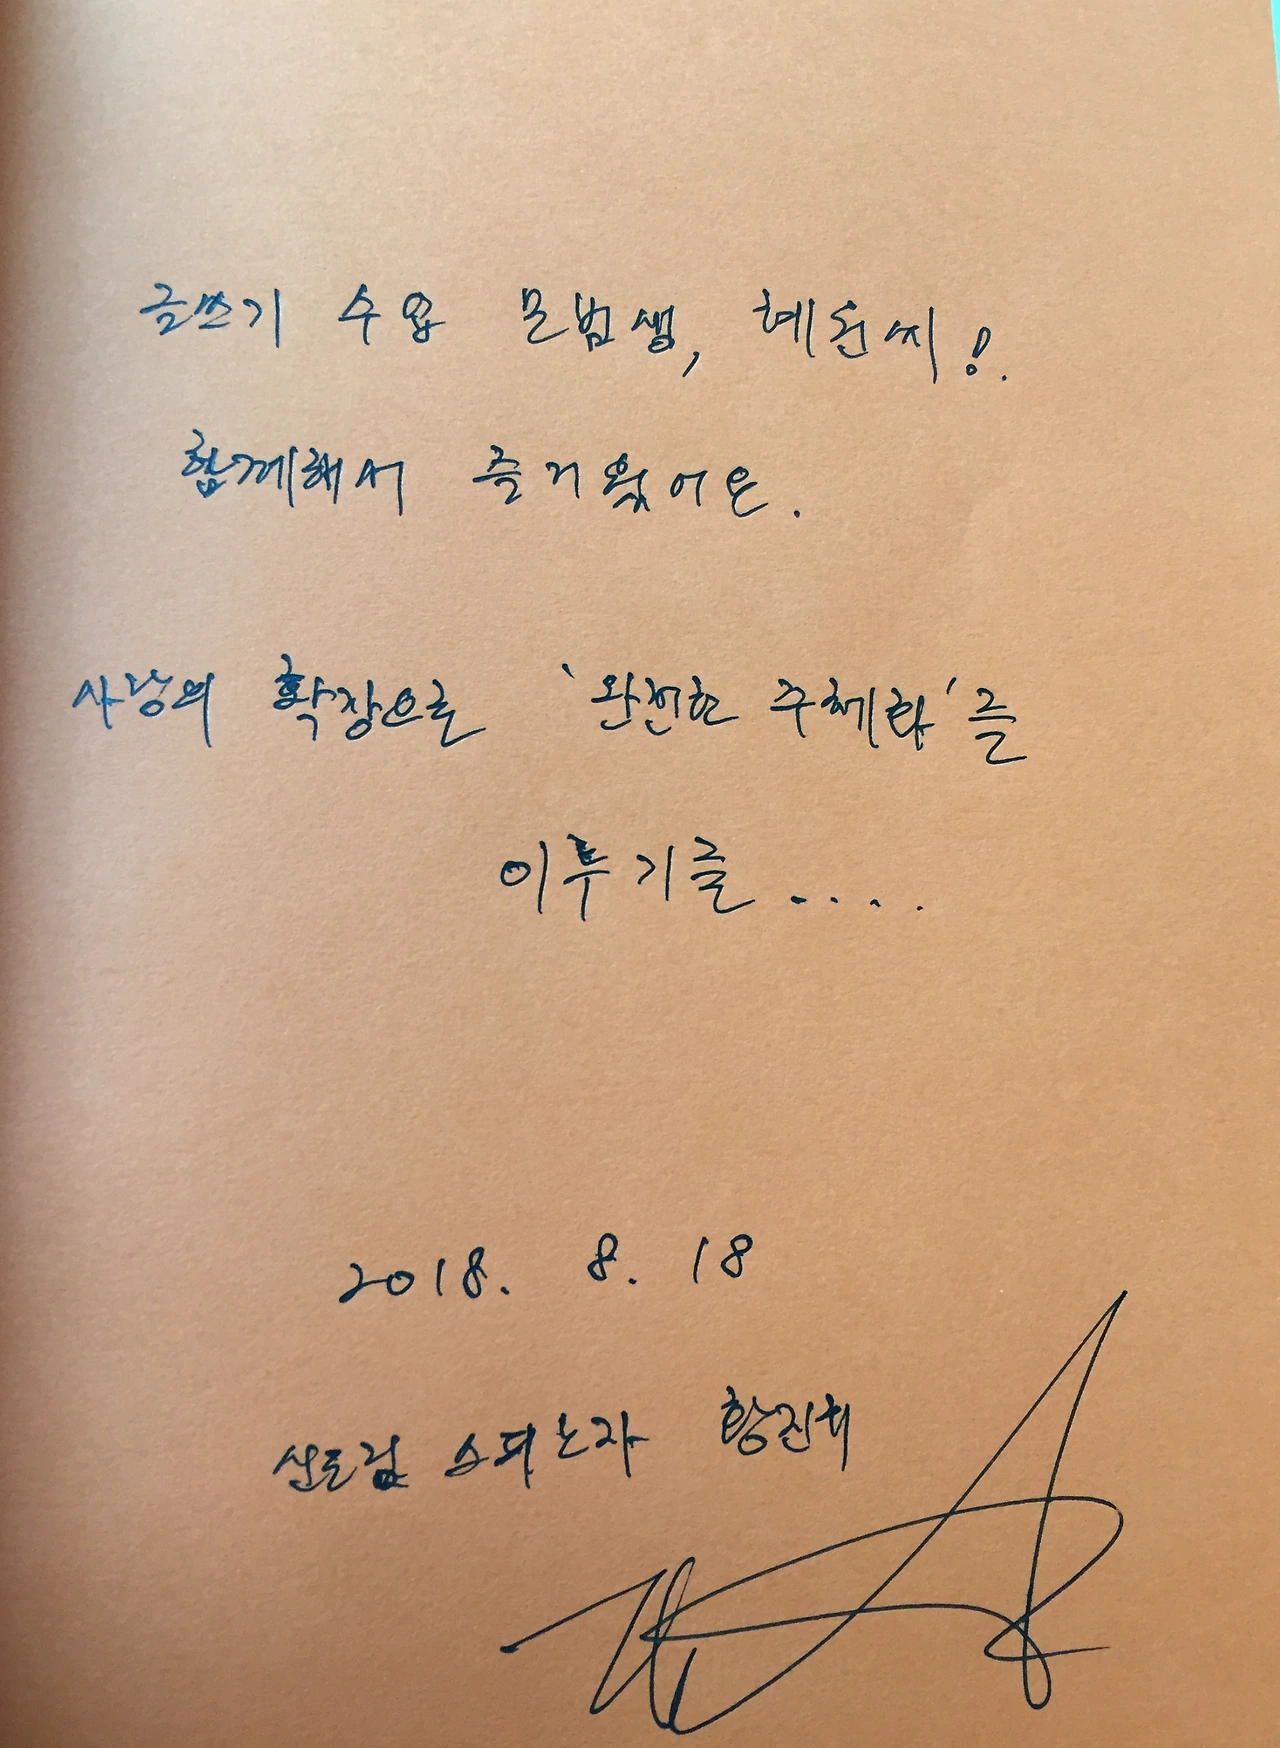 글쓰기 수업 모범생, 혜원씨!.
함께해서 즐거웠어요.
사랑의 확장으로 '완전한 주체화'를
이루기를 . . . .
2018. 8. 18
신도림 스피노자 황진규